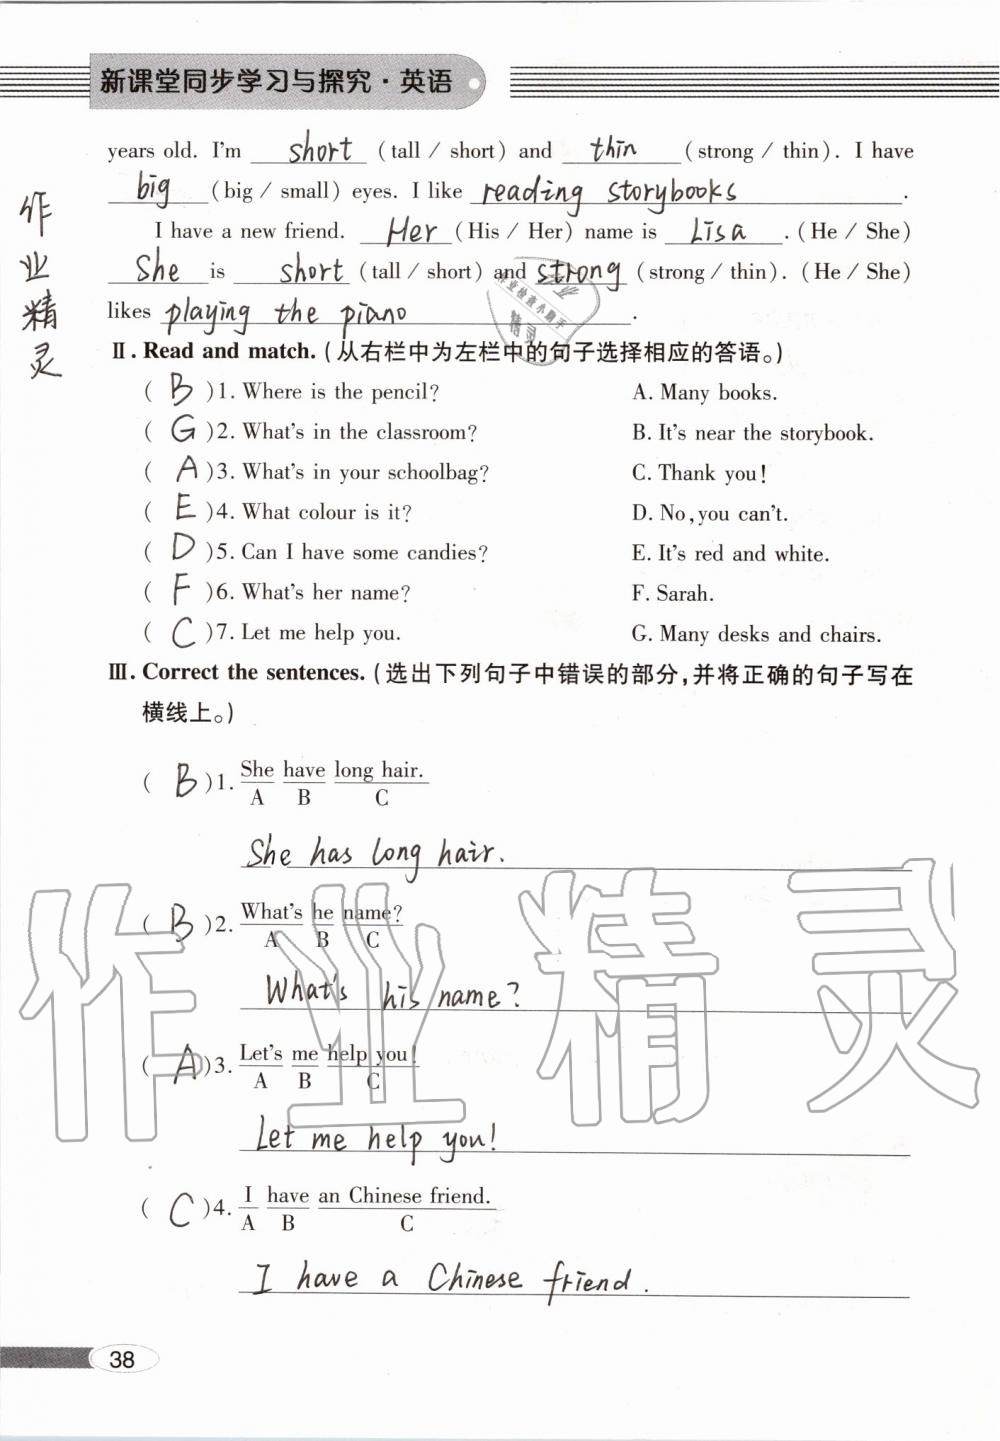 新课堂同步学习与探究·英语
years old. I'm short (tall / short) and thin (strong / thin). I have
big (big / small) eyes. I like reading storybooks.
I have a new friend. Her (His / Her) name is Lisa. (He / She)
She is short (tall / short) and strong (strong / thin). (He / She)
likes playing the piano.
作业精灵
作业检查小助手
精灵
Ⅱ. Read and match. (从右栏中为左栏中的句子选择相应的答语。)
( B )1. Where is the pencil? A. Many books.
( G )2. What's in the classroom? B. It's near the storybook.
( A )3. What's in your schoolbag? C. Thank you!
( E )4. What colour is it? D. No, you can't.
( D )5. Can I have some candies? E. It's red and white.
( F )6. What's her name? F. Sarah.
( C )7. Let me help you. G. Many desks and chairs.
Ⅲ. Correct the sentences. (选出下列句子中错误的部分,并将正确的句子写在
横线上。)
( B )1. She have long hair.
A B C
She has long hair.
( B )2. What's he name?
A B C
What's his name?
( A )3. Let's me help you!
A B C
Let me help you!
( C )4. I have an Chinese friend.
A B C
I have a Chinese friend.
作业精灵
38